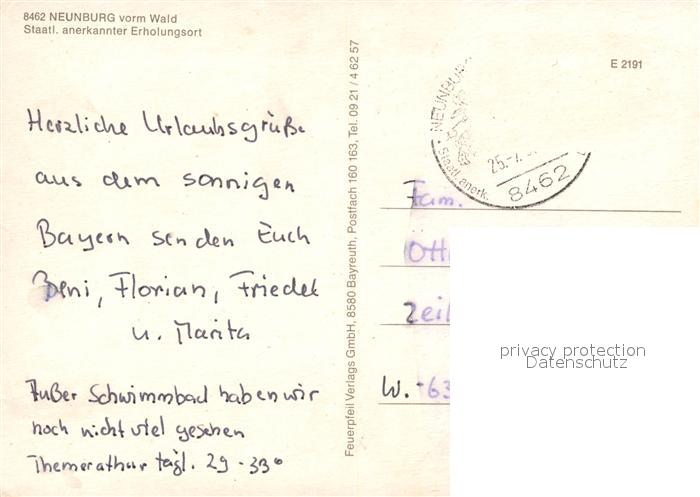 8462 NEUNBURG vorm Wald
Staatl. anerkannter Erholungsort
Herzliche Urlaubsgrüße
aus dem sonnigen
Bayern senden Euch
Beni, Florian, Friedel
u. Marita
Außer Schwimmbad haben wir
noch nicht viel gesehen
Themerathur tägl. 29 - 33°
Feuerpfeil Verlags GmbH, 8580 Bayreuth, Postfach 160 163, Tel. 09 21 / 4 62 57
E 2191
NEUNBURG
Staatl. anerk.
25.-7.
8462
Fam.
Ott
Zeil
W.-63
privacy protection
Datenschutz